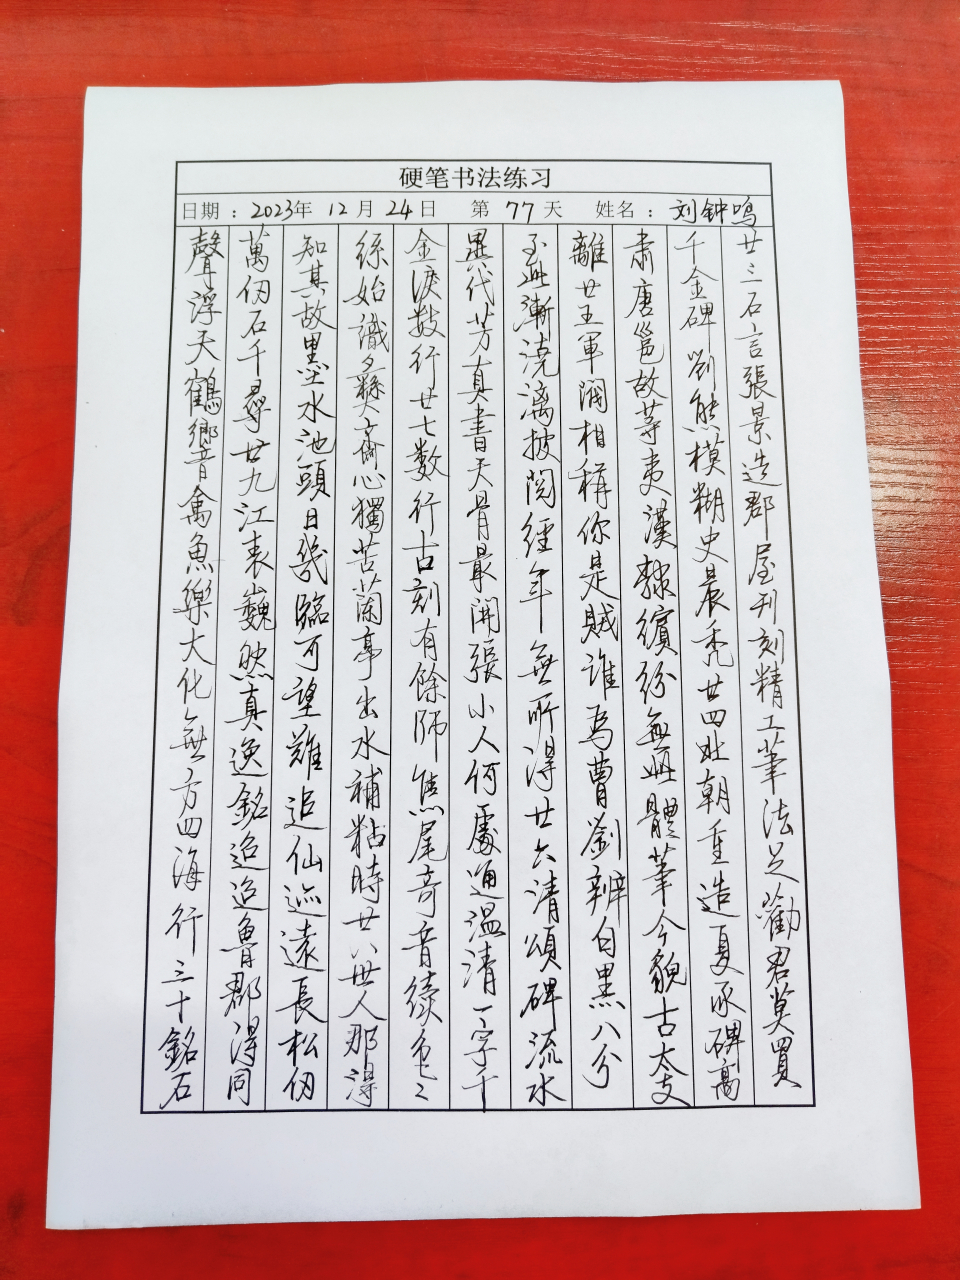 硬笔书法练习
日期：2023年 12月 24日 第 77 天 姓名：刘钟鸣
廿三石言張景造郡屋刊刻精工筆法足勸君莫買
千金碑劉熊模糊史晨禿廿四北朝重造夏承碑高
肅唐邕故等夷漢隸繽紛無晤體筆今貌古太支
離廿五軍闊相稱你是賊誰為曹劉辨白黑八分
至此漸澆漓披閱經年無所得廿六清頌碑流水
異代芳真書天骨最開張小人何處通溫清一字千
金淚數行廿七數行古刻有餘師焦尾奇音續色〻
絲始識彝齋心獨苦蘭亭出水補粘時廿八世人那得
知其故墨水池頭日幾臨可望難追仙迹遠長松仞
萬仞石千尋廿九江表巍然真逸銘迢迢魯郡得同
聲浮天鶴響音禽魚樂大化無方四海行三十銘石